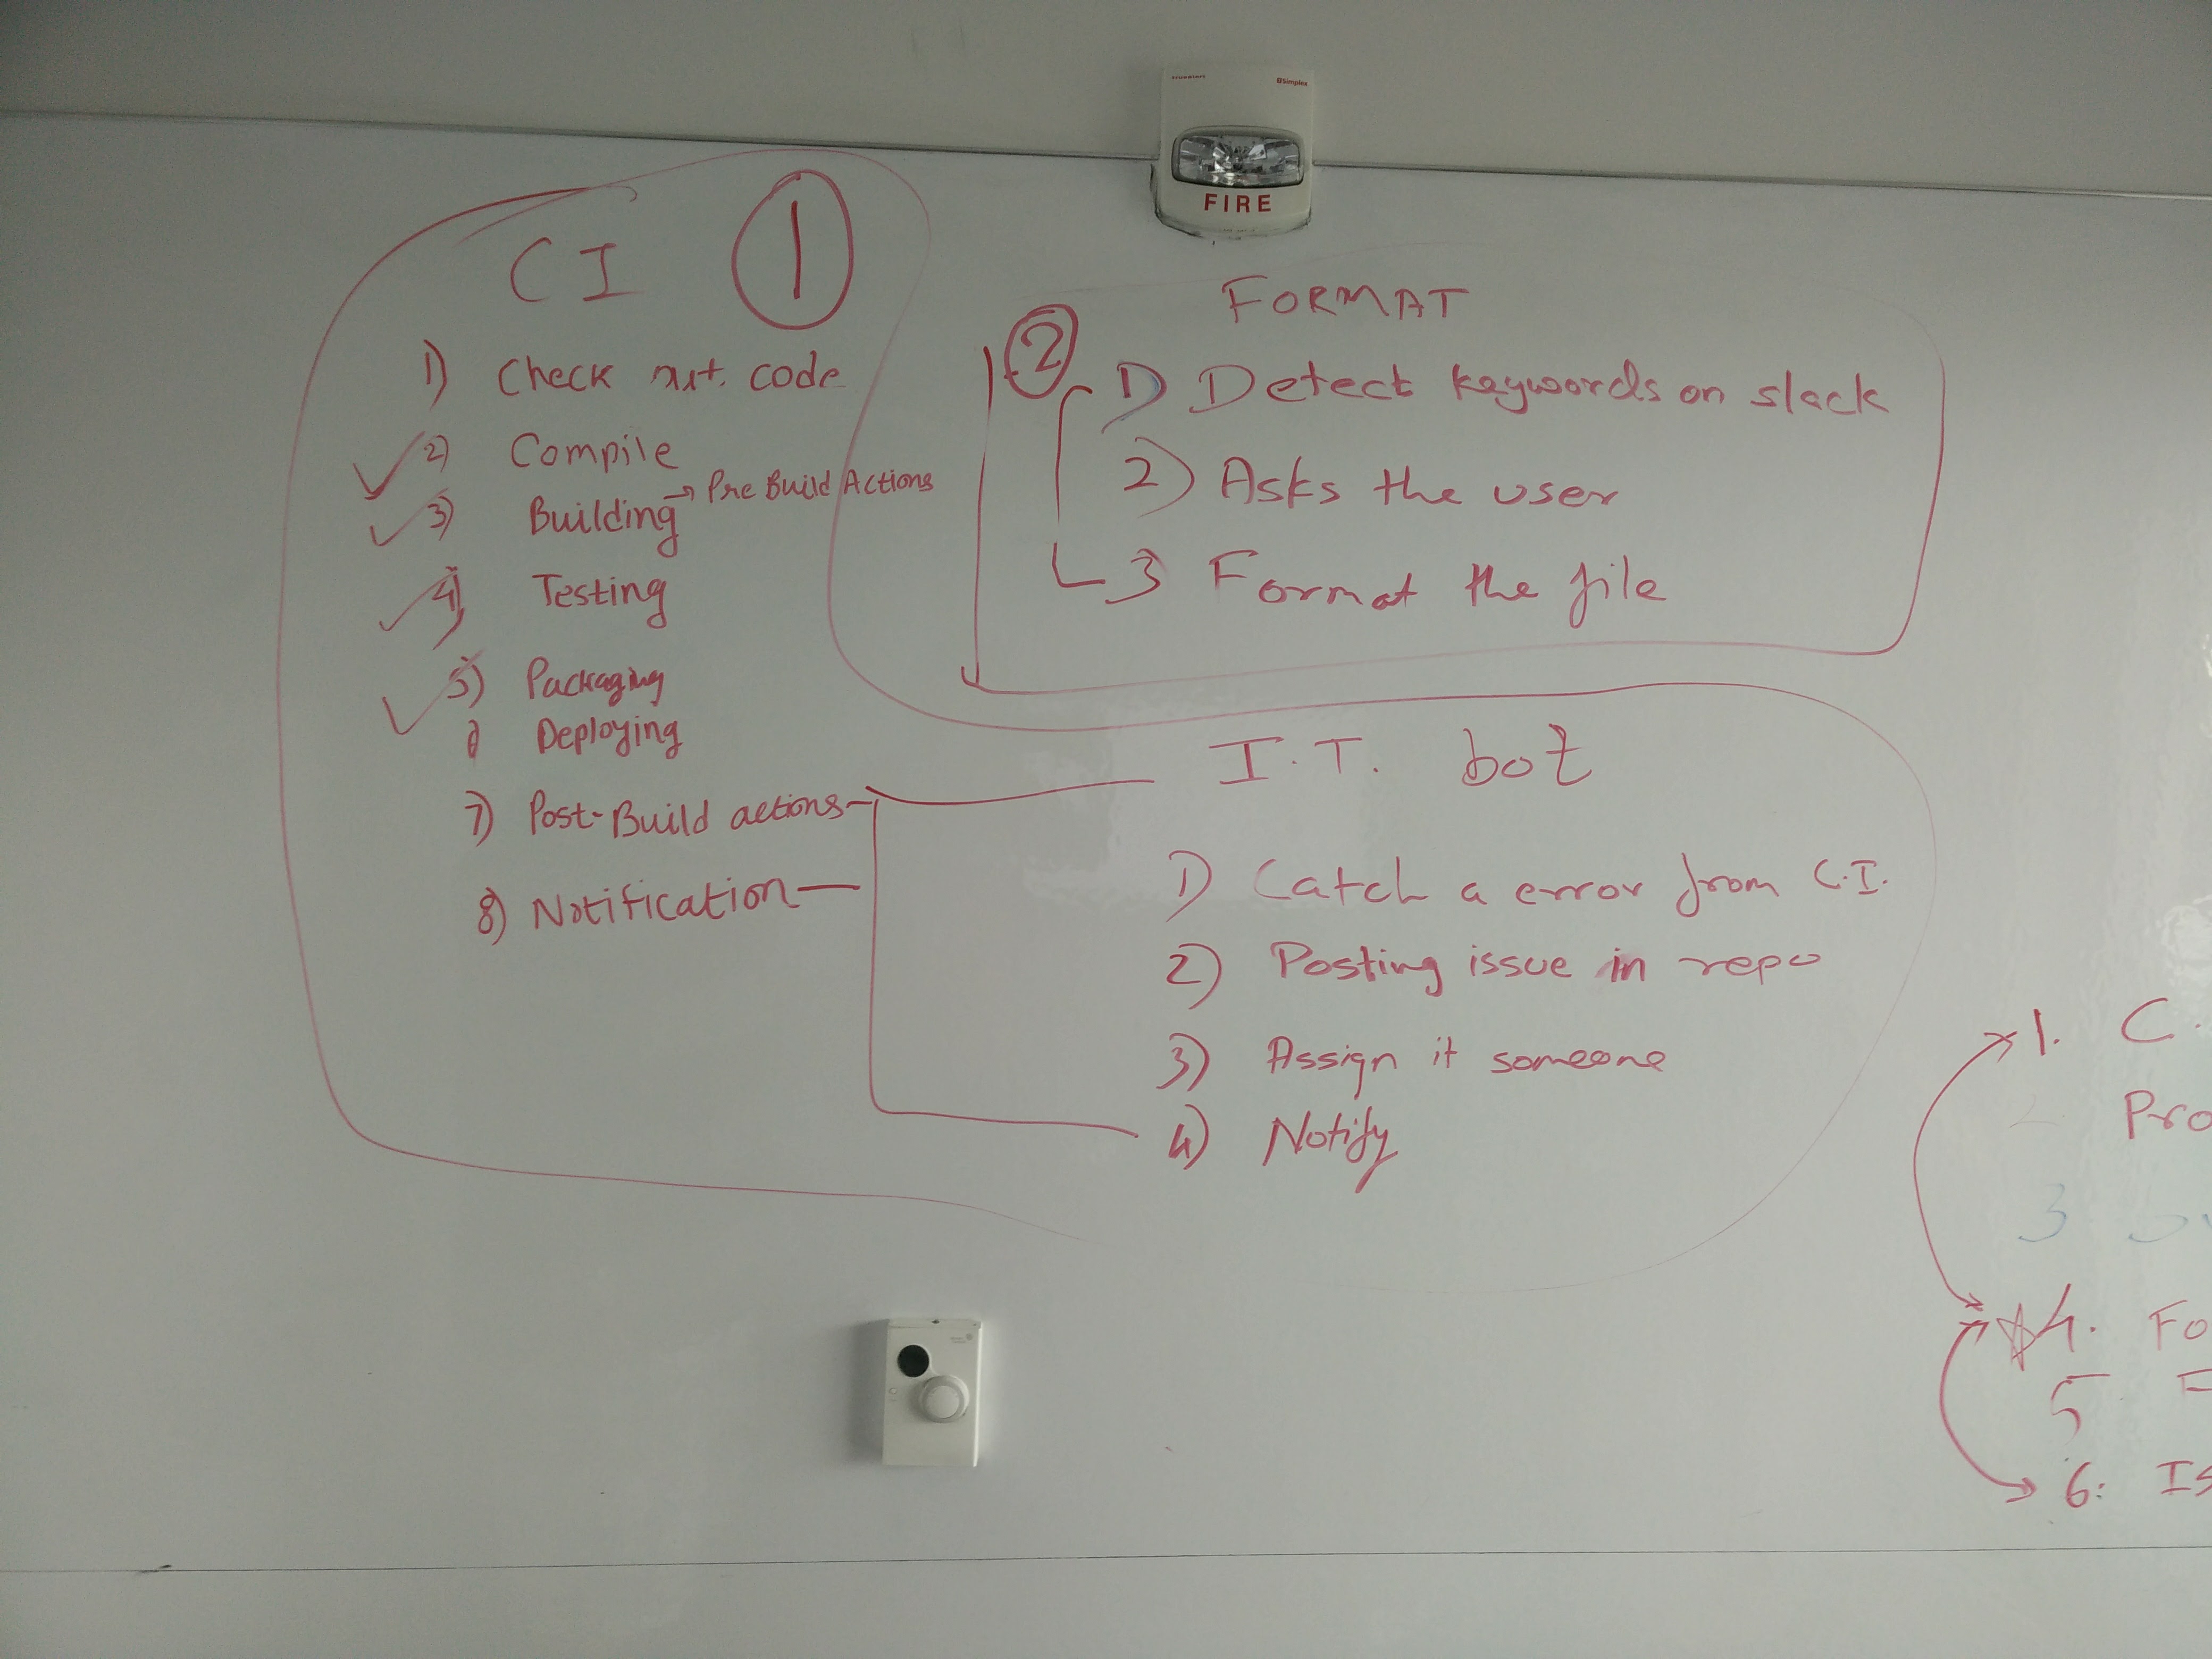 Simplex
FIRE
CI 1
1) Check code
2) Compile
3) Building → Pre Build Actions
4) Testing
5) Packaging
Deploying
7) Post-Build actions
8) Notification
FORMAT
2
1) Detect keywords on slack
2) Asks the user
3 Format the file
I.T. bot
1) Catch a error from C.I.
2) Posting issue in repo
3) Assign it someone
4) Notify
1. C.
Pro
3
4. Fo
5 F
6: IS